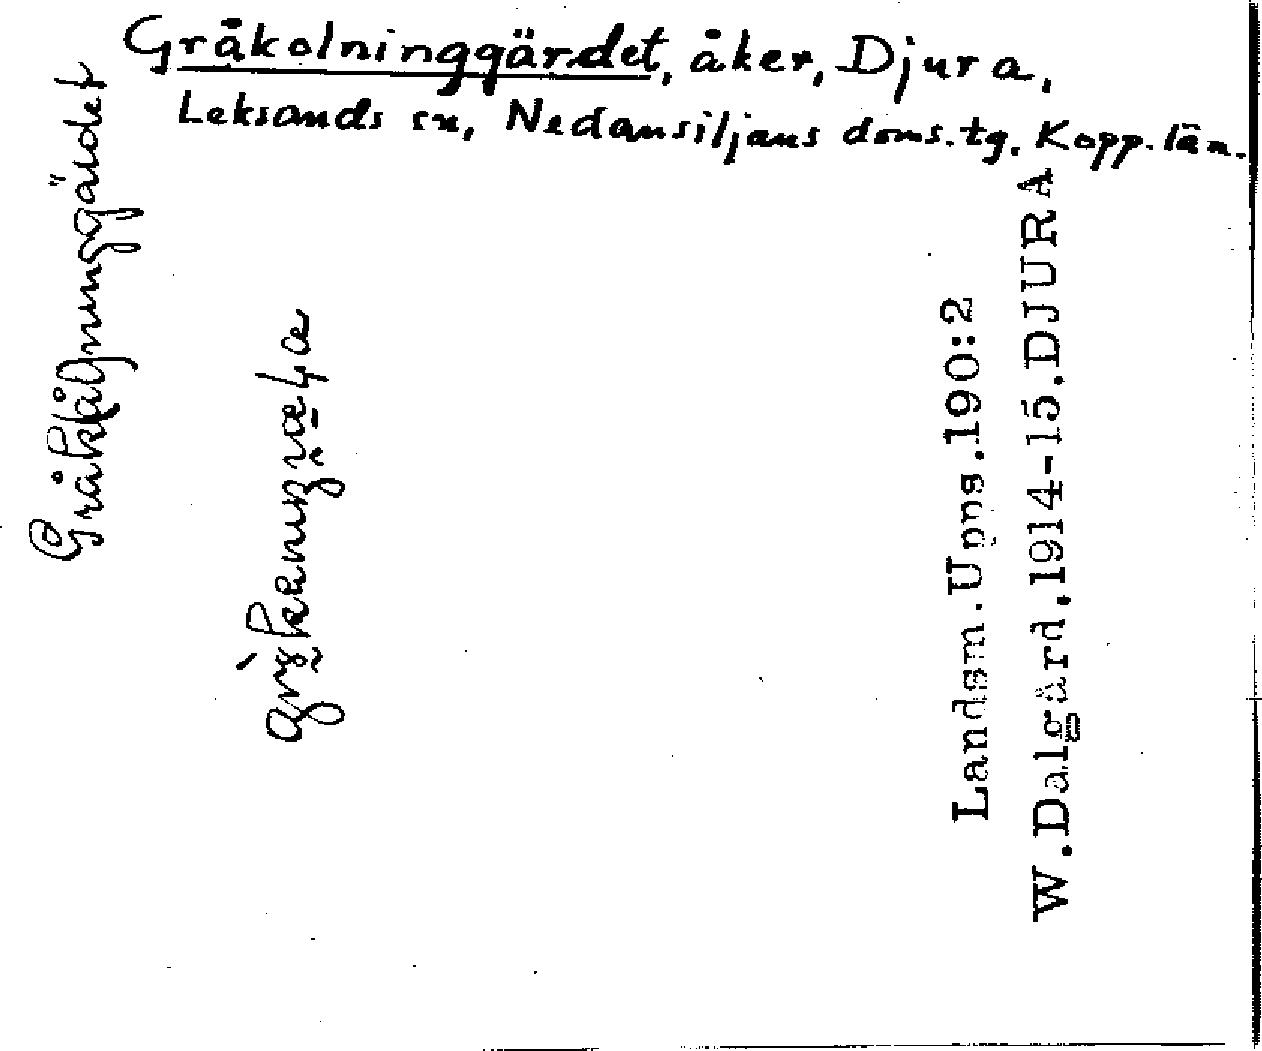 Gråkolninggärdet, åker, Djura,
Leksands sn, Nedansiljans doms.tg. Kopp. län.
Landsm.Upps.190:2
W.Dalgård.1914-15.DJURA